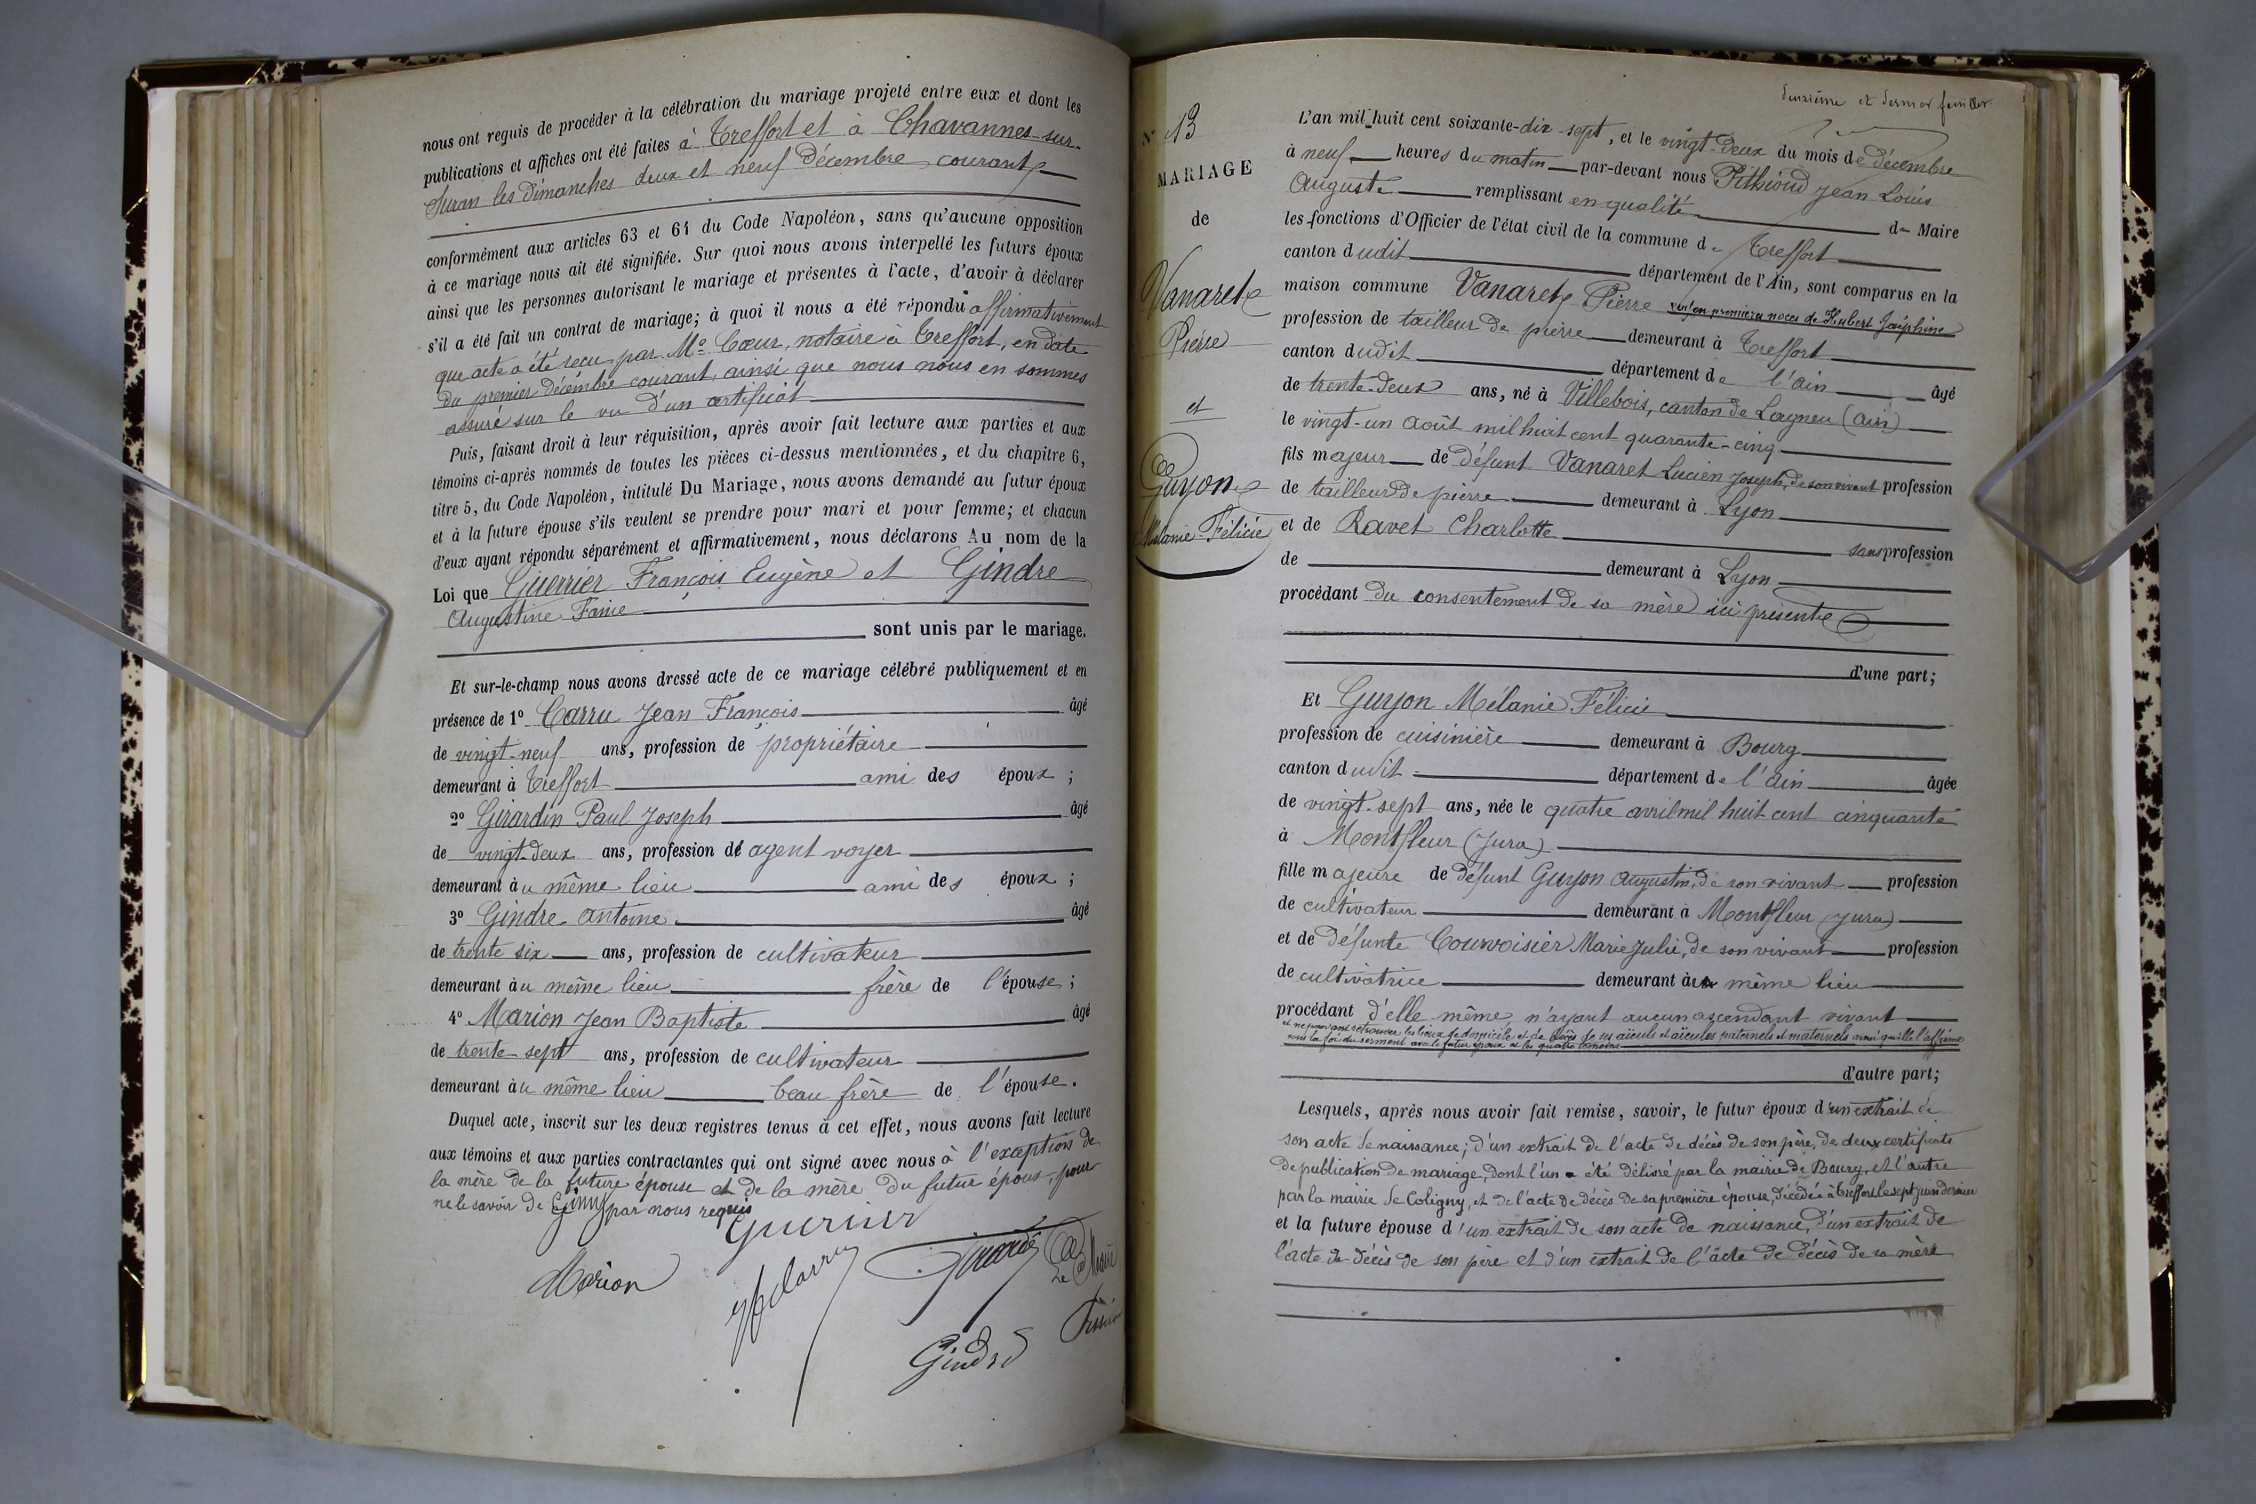 nous ont requis de procéder à la célébration du mariage projeté entre eux et dont les
publications et affiches ont été faites à Treffort et à Chavannes-sur-
Suran les dimanches deux et neuf décembre courant
conformément aux articles 63 et 64 du Code Napoléon, sans qu'aucune opposition
à ce mariage nous ait été signifiée. Sur quoi nous avons interpellé les futurs époux
ainsi que les personnes autorisant le mariage et présentes à l'acte, d'avoir à déclarer
s'il a été fait un contrat de mariage; à quoi il nous a été répondu affirmativement
que acte a été reçu par Me Cœur, notaire à Treffort, en date
du premier décembre courant, ainsi que nous nous en sommes
assuré sur le vu d'un certificat
Puis, faisant droit à leur réquisition, après avoir fait lecture aux parties et aux
témoins ci-après nommés de toutes les pièces ci-dessus mentionnées, et du chapitre 6,
titre 5, du Code Napoléon, intitulé Du Mariage, nous avons demandé au futur époux
et à la future épouse s'ils veulent se prendre pour mari et pour femme; et chacun
d'eux ayant répondu séparément et affirmativement, nous déclarons Au nom de la
Loi que Guerrier François Eugène et Gindre
Augustine Fanie
sont unis par le mariage.
Et sur-le-champ nous avons dressé acte de ce mariage célébré publiquement et en
présence de 1º Carru Jean François âgé
de vingt-neuf ans, profession de propriétaire
demeurant à Treffort ami des époux ;
2º Girardin Paul Joseph âgé
de vingt-deux ans, profession de agent voyer
demeurant au même lieu ami des époux ;
3º Gindre Antoine âgé
de trente six ans, profession de cultivateur
demeurant au même lieu frère de l'épouse ;
4º Marion Jean Baptiste âgé
de trente-sept ans, profession de cultivateur
demeurant au même lieu beau frère de l'épouse.
Duquel acte, inscrit sur les deux registres tenus à cet effet, nous avons fait lecture
aux témoins et aux parties contractantes qui ont signé avec nous à l'exception de
la mère de la future épouse et de la mère du futur époux, pour
ne le savoir de par nous requis
Guerrier
Marion
Carru
Le Maire
Gindre
deuxième et dernier feuillet
Nº 13
MARIAGE
de
Vanaret
Pierre
et
Guyon
Mélanie Félicie
L'an mil huit cent soixante-dix sept, et le vingt-deux du mois de décembre
à neuf heures du matin par-devant nous Pithioud Jean Louis
Auguste remplissant en qualité de Maire
les fonctions d'Officier de l'état civil de la commune de Treffort
canton dudit département de l'Ain, sont comparus en la
maison commune Vanaret Pierre veuf en premières noces de Hubert Joséphine
profession de tailleur de pierre demeurant à Treffort
canton dudit département de l'Ain âgé
de trente-deux ans, né à Villebois, canton de Lagneu (Ain)
le vingt-un août mil huit cent quarante-cinq
fils majeur de défunt Vanaret Lucien Joseph, de son vivant profession
de tailleur de pierre demeurant à Lyon
et de Ravet Charlotte sans profession
de demeurant à Lyon
procédant du consentement de sa mère ici présente
d'une part;
Et Guyon Mélanie Félicie
profession de cuisinière demeurant à Bourg
canton dudit département de l'Ain âgée
de vingt-sept ans, née le quatre avril mil huit cent cinquante
à Montfleur (Jura)
fille majeure de défunt Guyon Augustin, de son vivant profession
de cultivateur demeurant à Montfleur (Jura)
et de défunte Courvoisier Marie Julie, de son vivant profession
de cultivatrice demeurant au même lieu
procédant d'elle même n'ayant aucun ascendant vivant
et ne pouvant retrouver les lieux de domicile et de décès de ses aïeuls et aïeules paternels et maternels ainsi qu'elle l'affirme
sous la foi du serment avec le futur époux et les quatre témoins
d'autre part;
Lesquels, après nous avoir fait remise, savoir, le futur époux d'un extrait de
son acte de naissance; d'un extrait de l'acte de décès de son père, de deux certificats
de publication de mariage, dont l'un a été délivré par la mairie de Bourg, et l'autre
par la mairie de Coligny, et de l'acte de décès de sa première épouse, décédée à Treffort le sept juin dernier
et la future épouse d'un extrait de son acte de naissance, d'un extrait de
l'acte de décès de son père et d'un extrait de l'acte de décès de sa mère